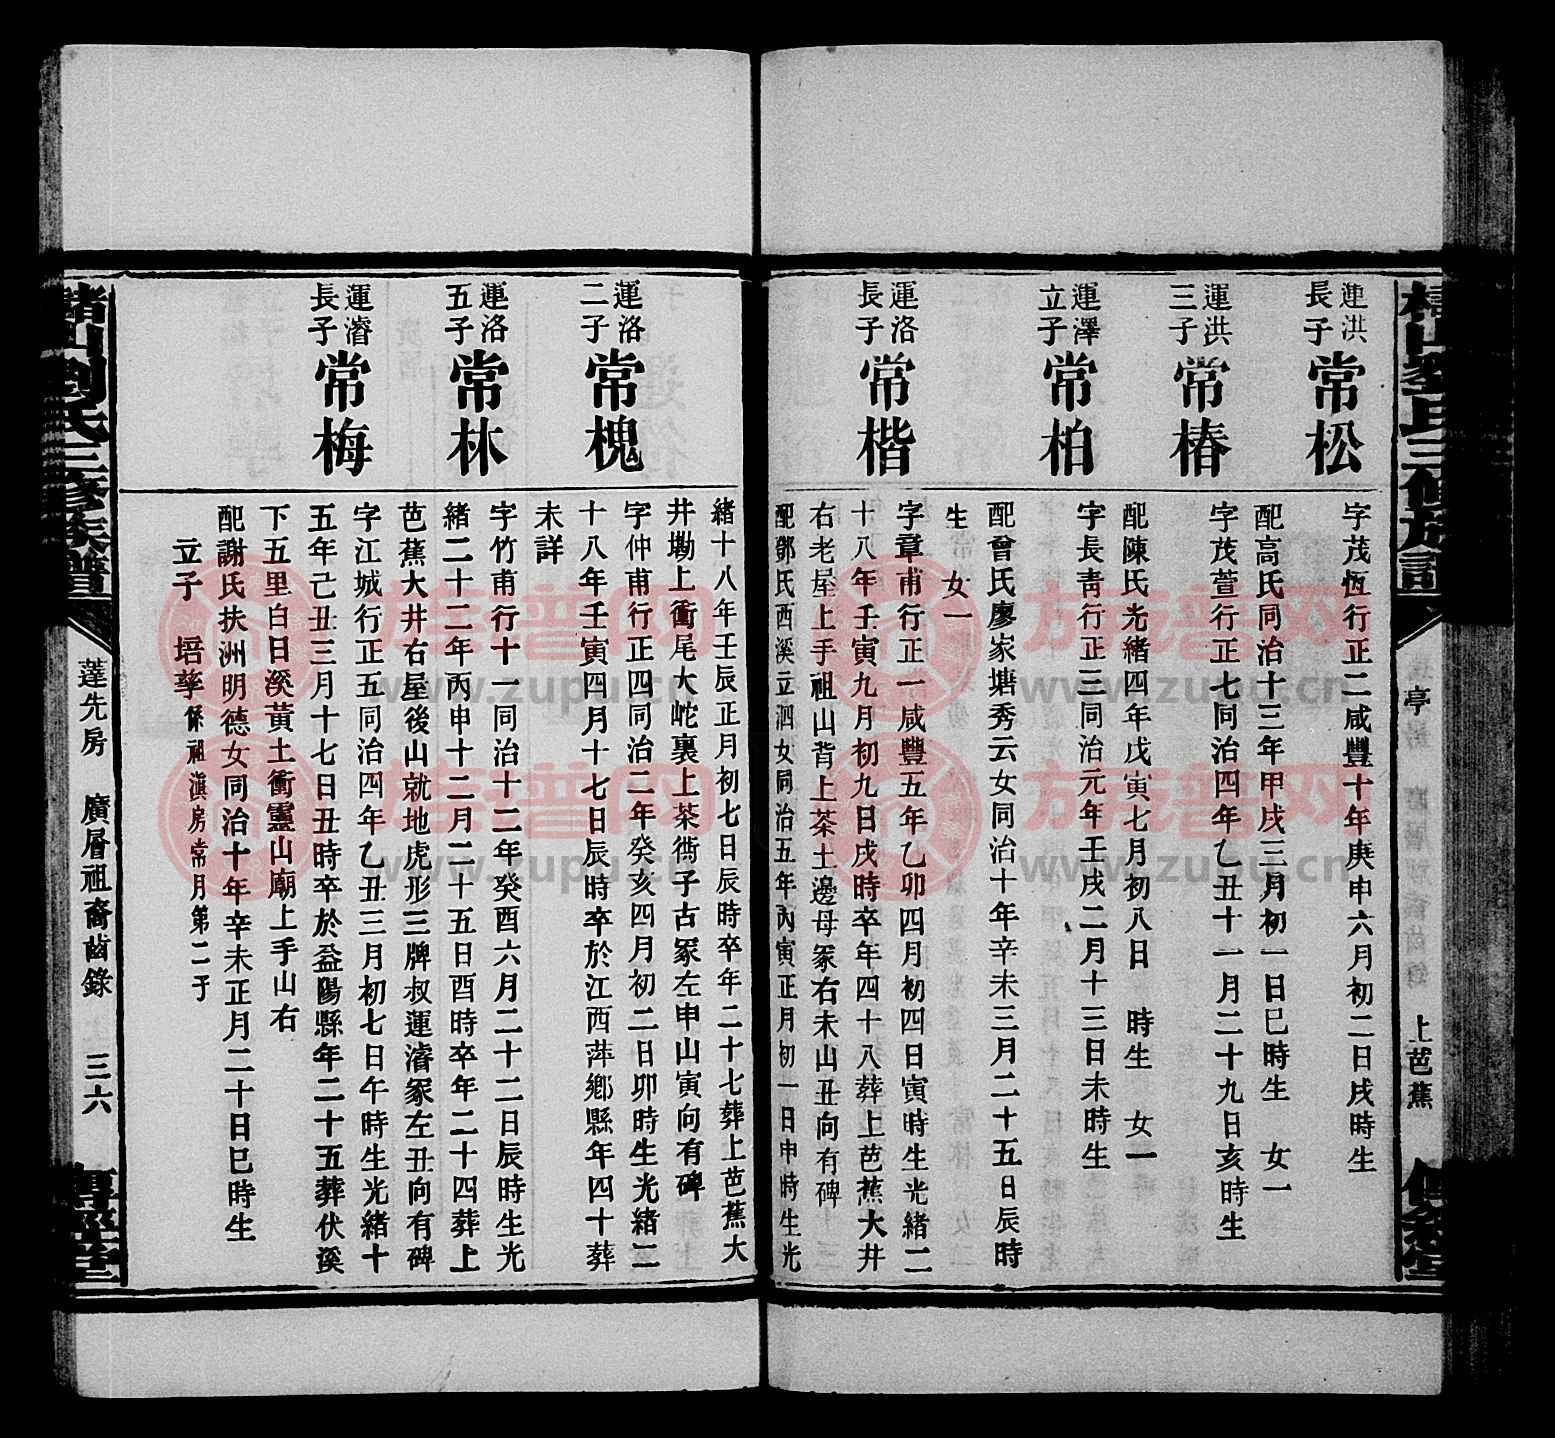 運洪
長子
常松
字茂恆行正二咸豐十年庚申六月初二日戌時生
配高氏同治十三年甲戌三月初一日巳時生 女一
運洪
三子
常椿
字茂萱行正七同治四年乙丑十一月二十九日亥時生
配陳氏光緒四年戊寅七月初八日 時生 女一
運澤
立子
常柏
字長青行正三同治元年壬戌二月十三日未時生
配曾氏廖家塘秀云女同治十年辛未三月二十五日辰時
生 女一
運洛
長子
常楷
字章甫行正一咸豐五年乙卯四月初四日寅時生光緒二
十八年壬寅九月初九日戌時卒年四十八葬上芭蕉大井
右老屋上手祖山背上茶土邊母冢右未山丑向有碑
配鄧氏西溪立泗女同治五年丙寅正月初一日申時生光
緒十八年壬辰正月初七日辰時卒年二十七葬上芭蕉大
井坳上衝尾大岮裏上茶衖子古冢左申山寅向有碑
運洛
二子
常槐
字仲甫行正四同治二年癸亥四月初二日卯時生光緒二
十八年壬寅四月十七日辰時卒於江西萍鄉縣年四十葬
未詳
運洛
五子
常林
字竹甫行十一同治十二年癸酉六月二十二日辰時生光
緒二十二年丙申十二月二十五日酉時卒年二十四葬上
芭蕉大井右屋後山就地虎形三牌叔運濬冢左丑向有碑
運濬
長子
常梅
字江城行正五同治四年乙丑三月初七日午時生光緒十
五年己丑三月十七日丑時卒於益陽縣年二十五葬伏溪
下五里白日溪黃土衝靈山廟上手山右
配謝氏扶洲明德女同治十年辛未正月二十日巳時生
立子 培孳係祖滇房常月第二子
劉氏三修族譜
蓬先房 廣層祖裔齒錄
三六